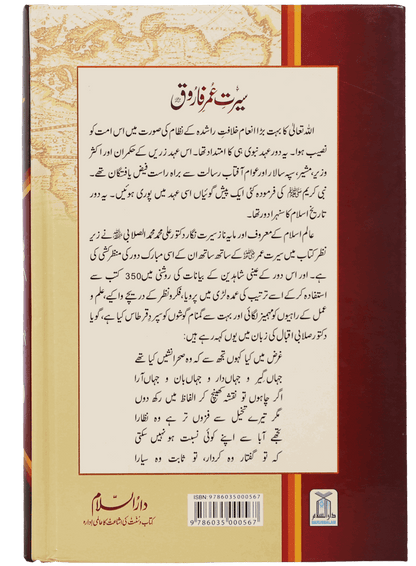 سیرتِ عُمر فاروق
اللہ تعالیٰ کا بہت بڑا انعام خلافتِ راشدہ کے نظام کی صورت میں اس امت کو
نصیب ہوا۔ یہ دور عہد نبوی ہی کا امتداد تھا۔ اس عہد زریں کے حکمران اور اکثر
وزیر، مشیر، سپہ سالار اور عوام آفتاب رسالت سے براہ راست فیض یافتگان تھے۔
نبی کریم ﷺ کی فرمودہ کئی ایک پیش گوئیاں اسی عہد میں پوری ہوئیں۔ یہ دور
تاریخ اسلام کا سنہرا دور تھا۔
عالم اسلام کے معروف اور مایہ ناز سیرت نگار دکتور علی محمد محمد الصلابی نے زیر
نظر کتاب میں سیرت عمر کے ساتھ ساتھ ان کے اسی مبارک دور کی منظر کشی کی
ہے۔ اور اس دور کے عینی شاہدین کے بیانات کی روشنی میں 350 کتب سے
استفادہ کر کے اسے ترتیب کی عمدہ لڑی میں پرویا، فکر و نظر کے دریچے وا کیے، علم و
عمل کے راہیوں کو مہمیز لگائی اور بہت سے گمنام گوشوں کو سپرد قرطاس کیا ہے، گویا
دکتور صلابی اقبال کی زبان میں یوں کہہ رہے ہیں:
غرض میں کیا کہوں تجھ سے کہ وہ صحرا نشیں کیا تھے
جہاں گیر و جہاں دار و جہاں بان و جہاں آرا
اگر چاہوں تو نقشہ کھینچ کر الفاظ میں رکھ دوں
مگر تیرے تخیل سے فزوں تر ہے وہ نظارا
تجھے آبا سے اپنے کوئی نسبت ہو نہیں سکتی
کہ تو گفتار وہ کردار، تو ثابت وہ سیارا
دارالسلام
کتاب و سنت کی اشاعت کا عالمی ادارہ
ISBN: 9786035000567
9 786035 000567
دارالسلام